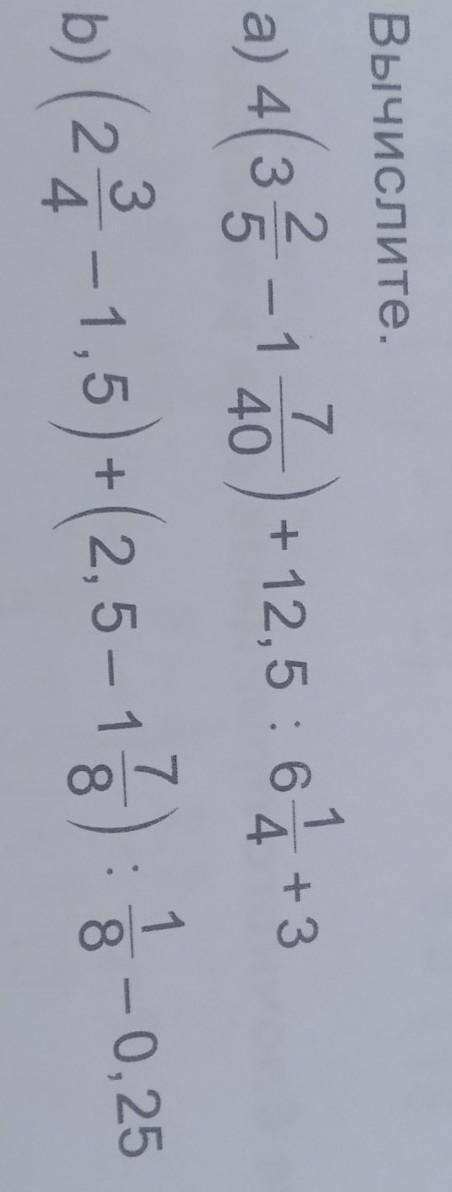 Вычислите.
a) 4(3 2/5 − 1 7/40) + 12,5 : 6 1/4 + 3
b) (2 3/4 − 1,5) + (2,5 − 1 7/8) : 1/8 − 0,25